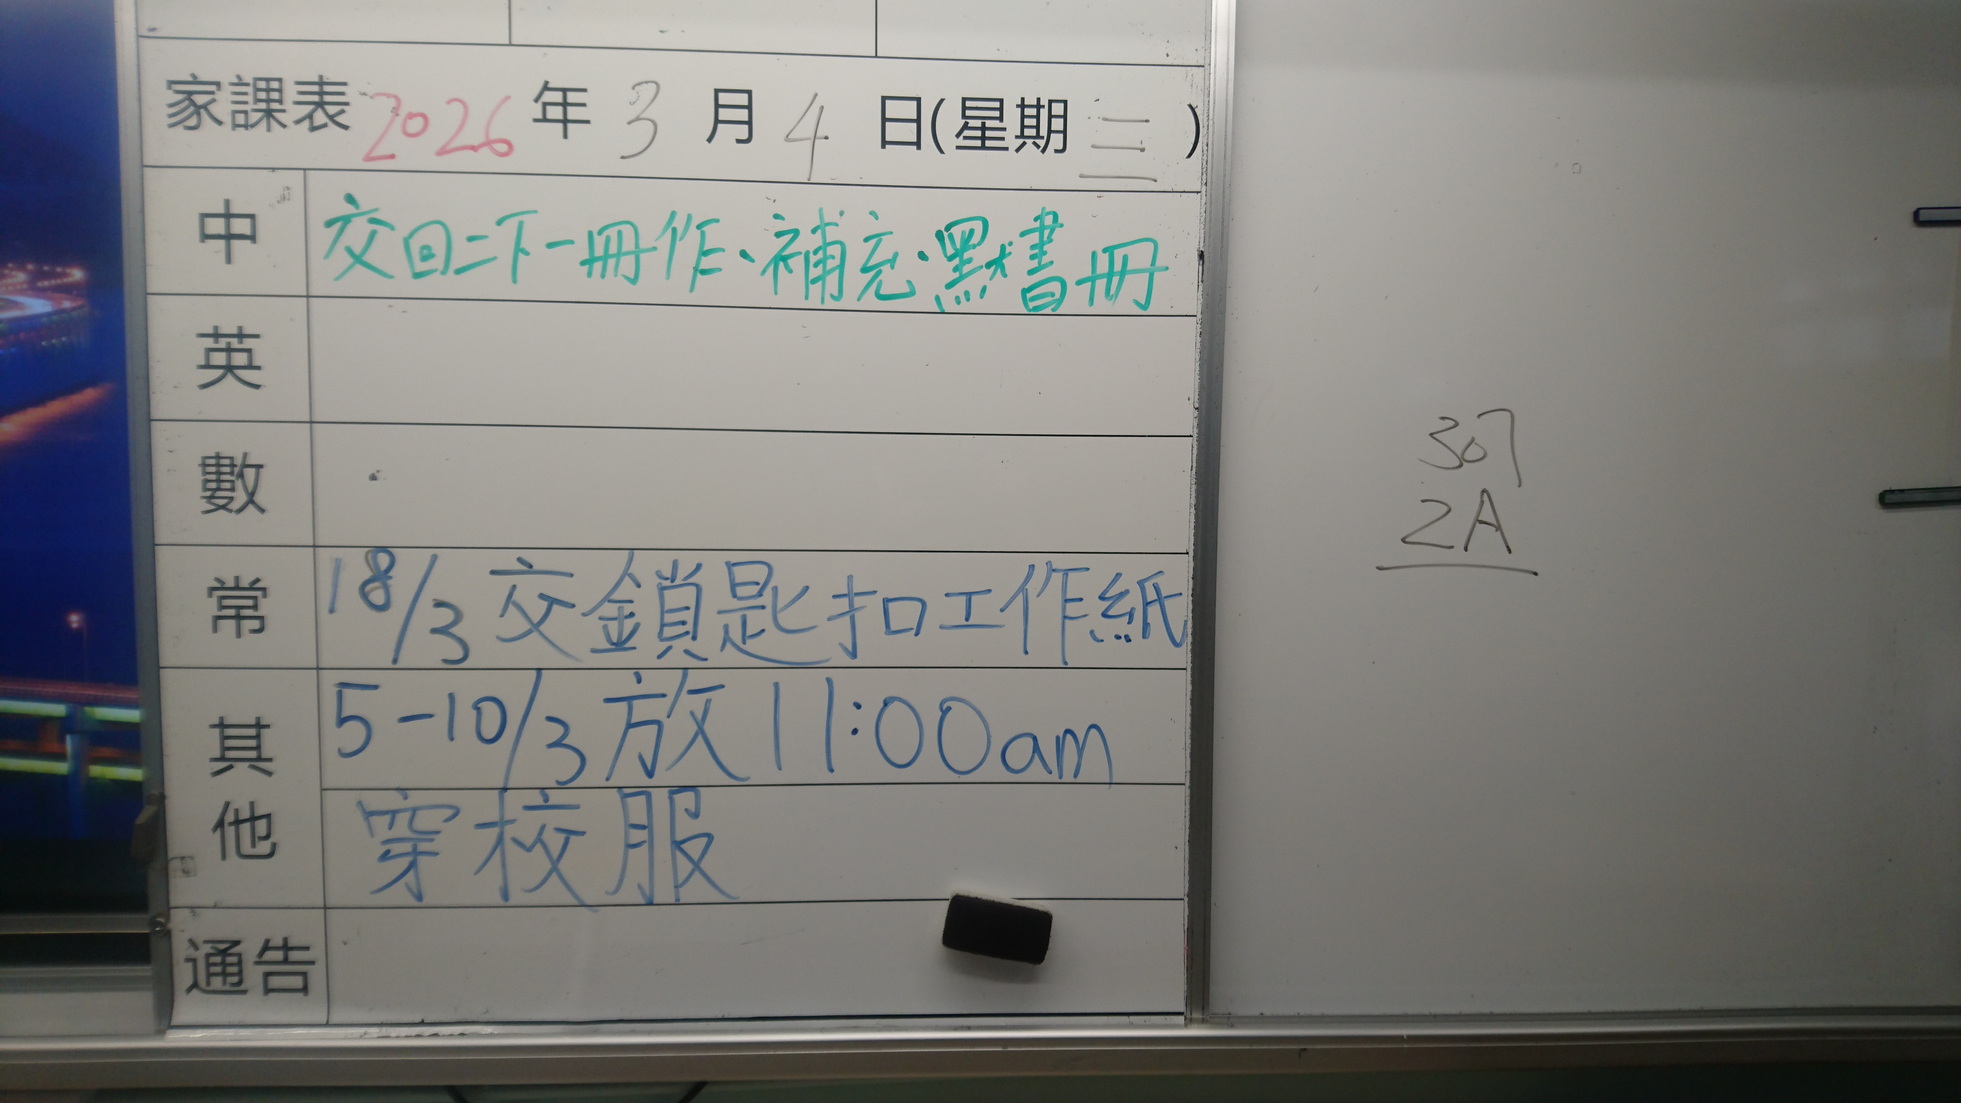 家課表 2026 年 3 月 4 日(星期三)
中 交回二下一冊作、補充、默書冊
英
數
常 18/3 交鎖匙扣工作紙
其他 5-10/3 放 11:00am
穿校服
通告
307
2A